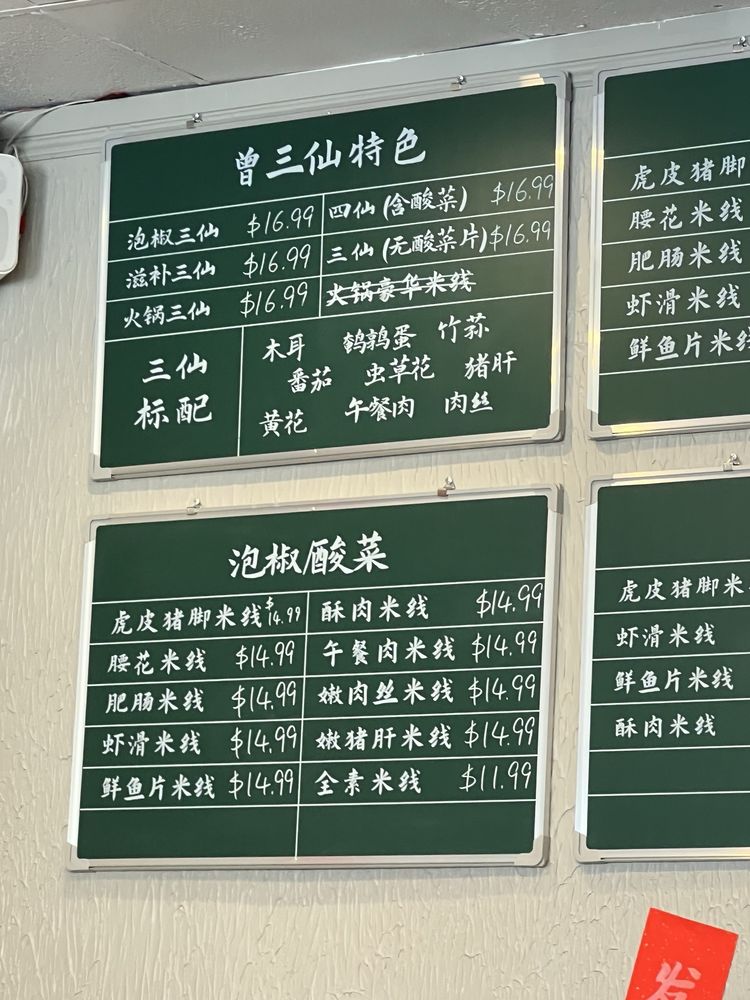 曾三仙特色
泡椒三仙 $16.99 四仙(含酸菜) $16.99
滋补三仙 $16.99 三仙(无酸菜片) $16.99
火锅三仙 $16.99 火锅豪华米线
三仙标配
木耳 鹌鹑蛋 竹荪
番茄 虫草花 猪肝
黄花 午餐肉 肉丝
泡椒酸菜
虎皮猪脚米线 $14.99 酥肉米线 $14.99
腰花米线 $14.99 午餐肉米线 $14.99
肥肠米线 $14.99 嫩肉丝米线 $14.99
虾滑米线 $14.99 嫩猪肝米线 $14.99
鲜鱼片米线 $14.99 全素米线 $11.99
虎皮猪脚
腰花米线
肥肠米线
虾滑米线
鲜鱼片米线
虎皮猪脚米
虾滑米线
鲜鱼片米线
酥肉米线
发